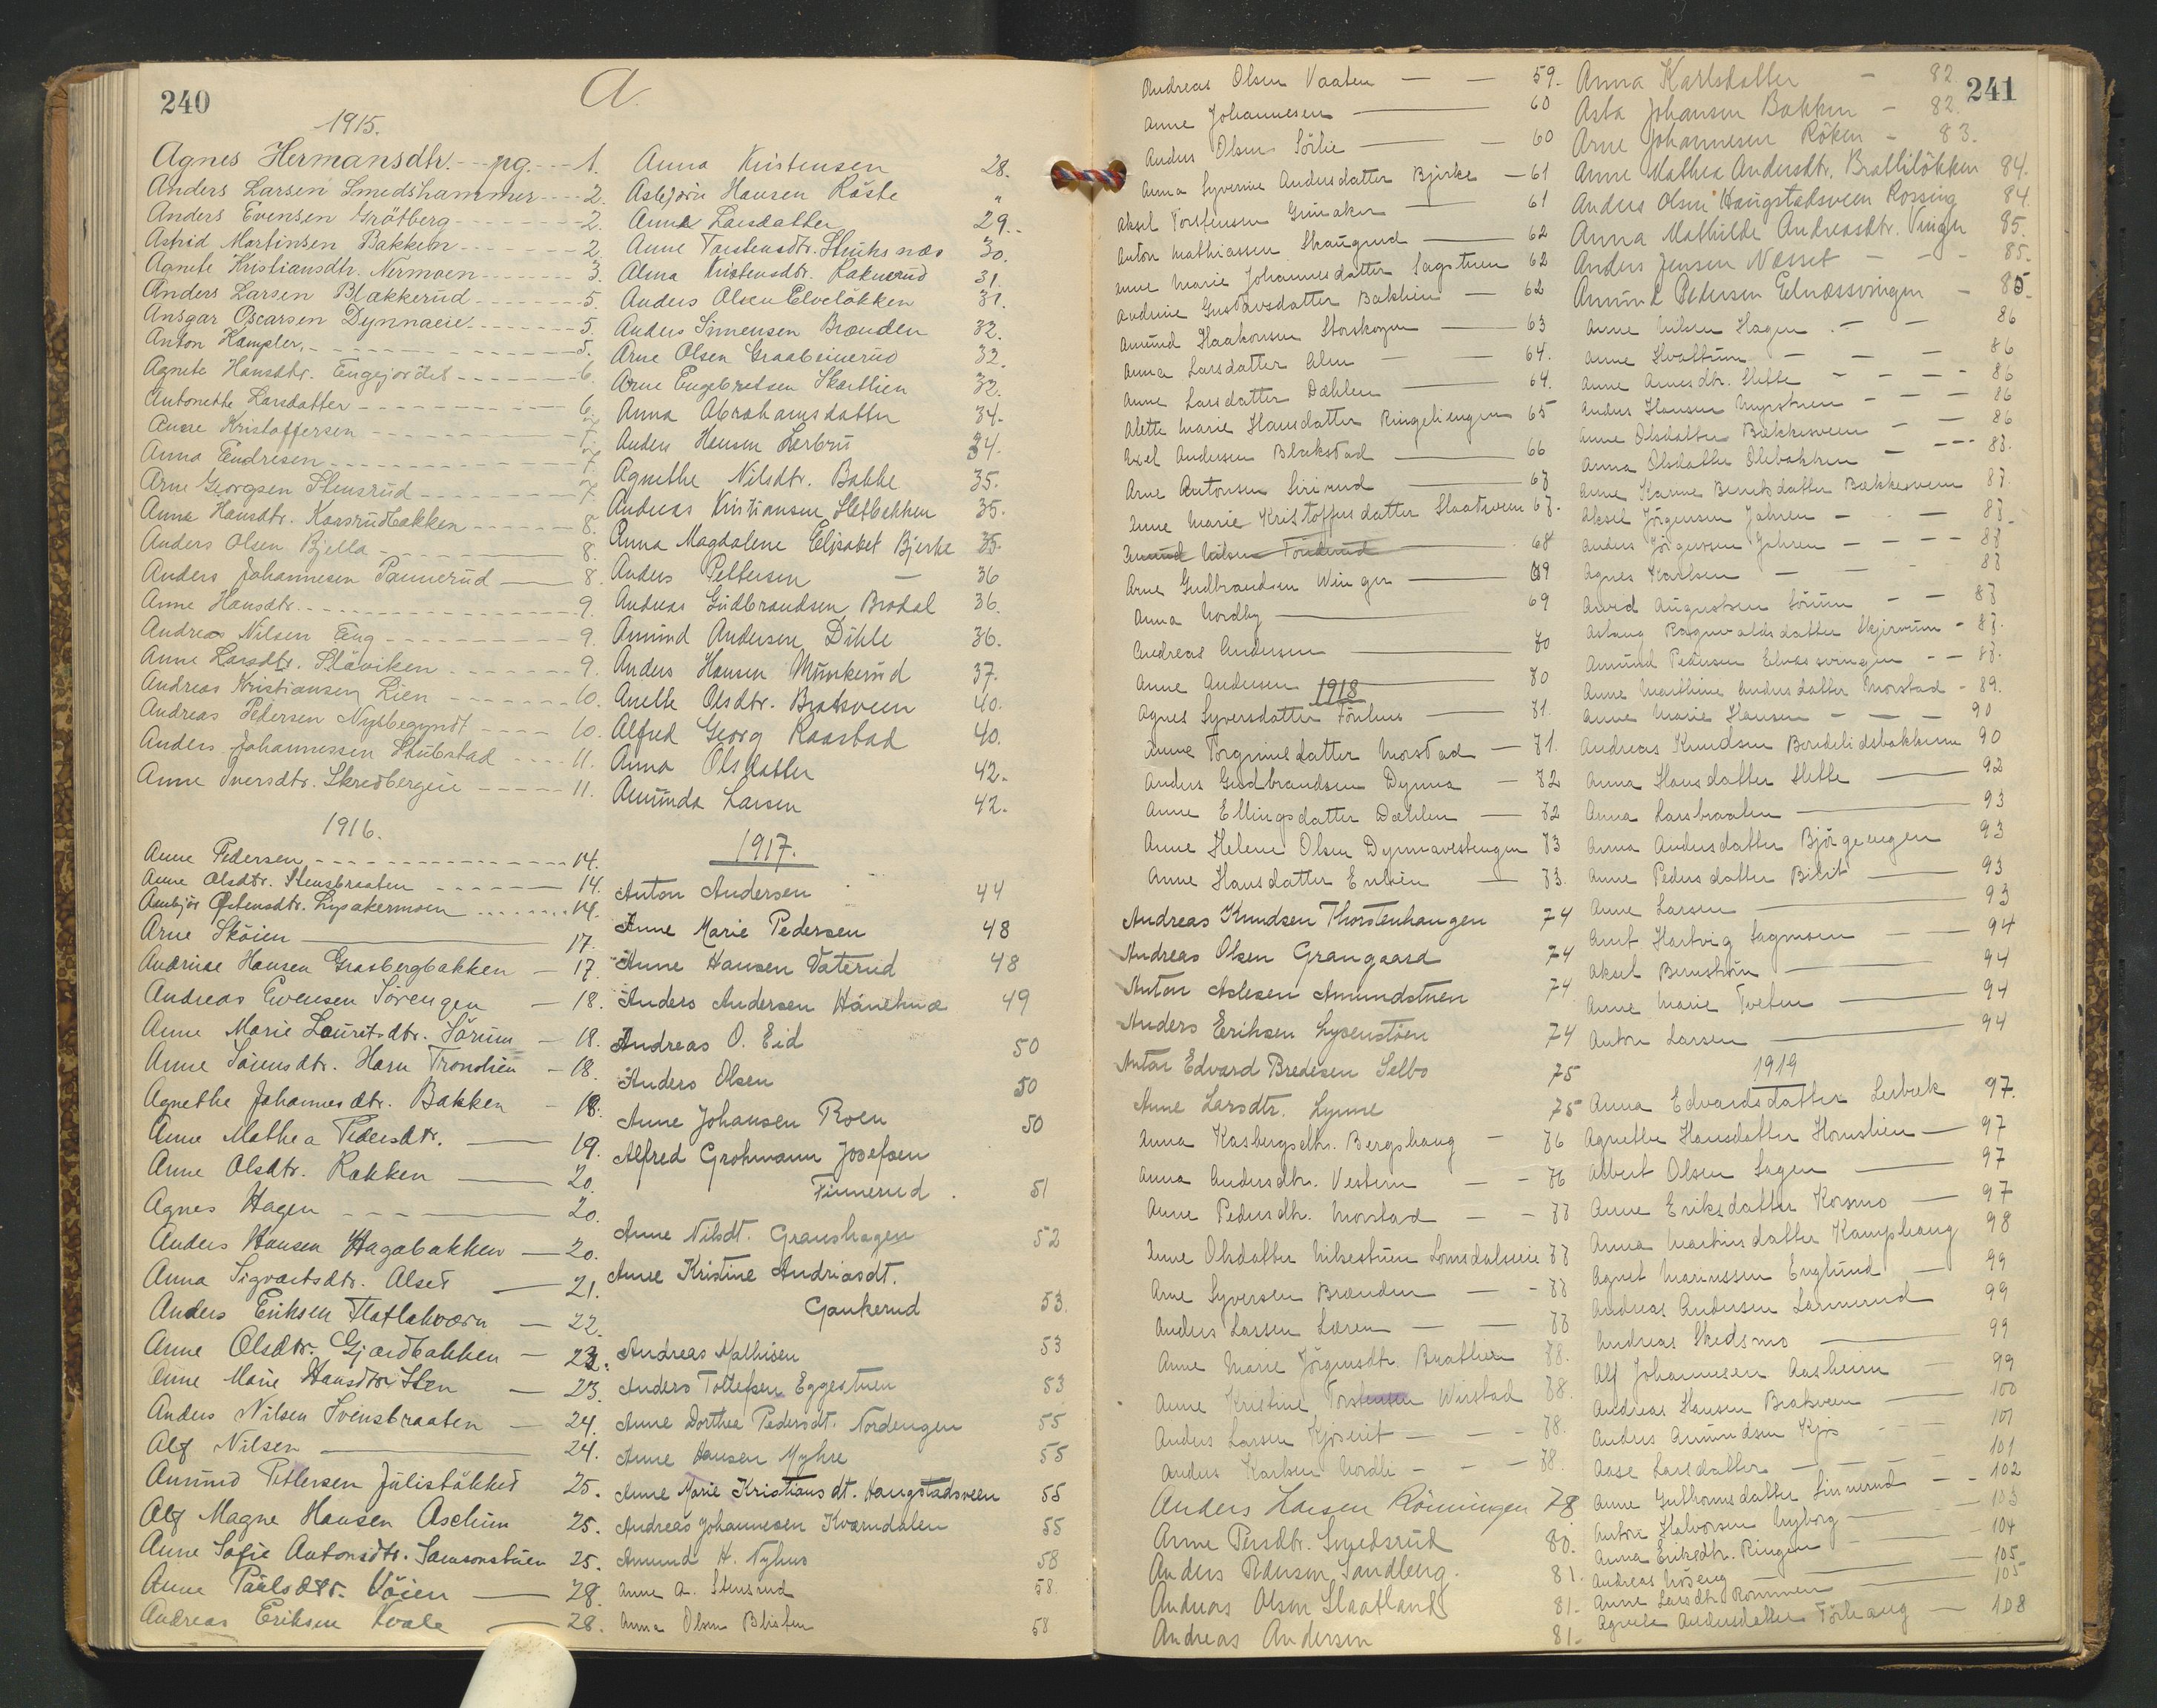 240
A.
1915.
Agnes Hermansdtr. pg. 1.
Anders Larsen Smedshammer 2.
Anders Evensen Gråtberg 2.
Astrid Martinsen Bakken 2.
Agnete Kristiansdtr. Nermoen 3.
Anders Larsen Blækkerud 5.
Ansgar Oscarsen Dynnaeie 5.
Anton Kampler 5.
Agnete Hansdtr. Engejordet 6.
Antonette Larsdatter 6.
Anne Kristoffersen 7.
Anna Endresen 7.
Arne Georgsen Stensrud 7.
Anna Hansdtr. Karsrudbakken 8.
Anders Olsen Bjella 8.
Anders Johannesen Pannerud 8.
Anne Hansdtr. 9.
Andreas Nilsen Eng 9.
Anne Larsdtr. Slåviken 9.
Andreas Kristiansen Lien 10.
Andreas Pedersen Nysbegyndt 10.
Anders Johannessen Stubstad 11.
Anne Iversdtr. Skredbergeie 11.
1916.
Anne Pedersen 14.
Anne Olsdtr. Stensbraaten 14.
Ambjör Østensdtr. Lysakermoen 14.
Arne Sköien 17.
Andrine Hansen Grasbergbakken 17.
Andreas Evensen Sörengen 18.
Anne Marie Lauritsdtr. Sörum 18.
Anne Sörensdtr. Horn Tronslien 18.
Agnethe Johannesdtr. Bakken 18.
Anne Mathea Pedersdtr. 19.
Anne Olsdtr. Rakken 20.
Agnes Hagen 20.
Anders Hansen Hagabakken 20.
Anna Sigvartsdtr. Alset 21.
Anders Eriksen Flatlakværn 22.
Anne Olsdtr. Gjærdbakken 23.
Anne Marie Hansdtr. Sten 23.
Anders Nilsen Svensbraaten 24.
Alf Nilsen 24.
Amund Pettersen Julistökket 25.
Alf Magne Hansen Aschim 25.
Anne Sofie Antonsdtr. Samsonstuen 25.
Anne Paulsdtr. Vöien 28.
Andreas Eriksen Kvale 28.
Anna Kristensen 28.
Asbjörn Hansen Röste "
Anna Larsdatter 29.
Anne Torstensdtr. Stuksnæs 30.
Alma Kristensdtr. Raknerud 31.
Anders Olsen Elvelökken 31.
Anders Simensen Brænden 32.
Arne Olsen Graabeinerud 32.
Arne Engebretsen Skartlien 32.
Anna Abrahamsdatter 34.
Anders Hansen Lerbru 34.
Agnethe Nilsdtr. Babbe 35.
Andreas Kristiansen Sletbekken 35.
Anna Magdalene Elisabet Bjerke 35.
Anders Pettersen 36
Andreas Gudbrandsen Brodal 36.
Amund Andersen Dihle 36.
Anders Hansen Munkerud 37.
Anette Olsdtr. Bratsveen 40.
Alfred Georg Raastad 40.
Anna Olsdatter 42.
Amunda Larsen 42.
1917.
Anton Andersen 44
Anne Marie Pedersen 48
Anne Hansen Vaterud 48
Anders Andersen 49
Andreas O. Eid 50
Anders Olsen 50
Anne Johansen Roen 50
Alfred Grohmann Josefsen
Finnerud. 51
Anne Nilsdt. Granshagen 52
Anne Kristine Andriasdt.
Gaukerud 53.
Andreas Mathisen 53
Anders Tollefsen Eggestuen 53
Anne Dorthea Pedersdt. Nordengen 55
Anne Hansen Myhre 55
Anne Marie Kristiansdt. Haugstadsveen 55
Andreas Johannesen Kværndalen 55
Amund H. Nyhus 58
Anne A. Stensrud 58.
Anna Olsen Blisten 58
Andreas Olsen Vaaten 59.
Anne Johannesen 60
Anders Olsen Sörlie 60
Anna Syverine Andersdatter Bjerke 61
Aksel Torstensen Grinaker 61
Anton Mathiassen Skaugrud 62
Anne Marie Johannesdatter Sagstuen 62
Andrine Gustavsdatter Bakkien 62
Amund Haakonsen Storskogen 63
Anna Larsdatter Alm 64.
Anne Larsdatter Dæhlen 64.
Alette Marie Hansdatter Ringeliengen 65
Axel Andersen Blækstad 66
Arne Antonsen Sirirud 67
Anne Marie Kristoffersdatter Slaatsveen 67.
68
Arne Gudbrandsen Winger 69
Anna Nordby 69
Andreas Andersen 70
Anne Andersen 70
1918
Agnes Syversdatter Fönhus 71.
Anne Torgrimsdatter Morstad 71.
Anders Gudbrandsen Dynna 72
Anne Ellingsdatter Dæhlen 72
Anne Helene Olsen Dynnavestengen 73
Anne Hansdatter Enlien 73.
Andreas Knudsen Thorstenhaugen 74
Andreas Olsen Grangaard 74
Anton Aslesen Amundstuen 74
Anders Eriksen Lysenstöen 74
Anton Edvard Bredesen Selbo 75
Anne Larsdtr. Lynne 75
Anna Kasbergsdtr. Bergshaug 76
Anna Andersdtr. Vestern 76
Anne Pedersdtr. Morstad 77
Anne Olsdatter Nilsestuen Lomsdalseie 77
Arne Syversen Brænden 77
Anders Larsen Læren 77
Anne Marie Jörgensdtr. Bratlien 78.
Anne Kristine Torstensen Wirstad 78.
Anders Larsen Kjöseit 78.
Anders Karlsen Nordli 78.
Anders Larsen Rönningen 78.
Anne Persdtr. Smedsrud 80.
Anders Pederson Sandberg. 81.
Andreas Olsen Slaatland 81.
Andreas Andersen 81.
241
Anna Karlsdatter 82.
Asta Johansen Bakken 82.
Arne Johannesen Röken 83.
Anne Mathea Andersdtr. Brattilökken 84.
Anders Olsen Haugstadsveen Rossing 84.
Anna Mathilde Andreasdtr. Vinger 85.
Anders Jensen Næsset 85.
Amund Pedersen Elnæssvingen 85.
Anne Nilsen Hagen 86
Anne Hvattum 86
Anne Arnesdtr. Slette 86
Anders Hansen Myrstuen 86
Anne Olsdatter Bakkesveen 86
Anna Olsdatter Olebakken 87.
Anne Karine Berntsdatter Bakkesveen 87.
Aksel Jörgensen Jahren 87
Anders Jörgensen Jahren 87
Agnes Karlsen 87
Arvid Augustsen Sörum 87
Aslaug Ragnvaldsdatter Skjervum 87.
Amund Pedersen Elvæssvingen 87.
Anne Marthine Andersdatter Morstad 89.
Anne Marie Hansen 90
Andreas Knudsen Bondelidsbakken 90
Anna Hansdatter Slette 92
Anna Larsbraaten 93
Anna Andersdatter Björgeengen 93
Anne Pedersdatter Bilit 93
Anne Larsen 93
Arnt Hartvig Sagmoen 94
Aksel Bernström 94
Anne Marie Tveten 94
Anton Larsen 94
1919
Anna Edvardsdatter Lerbæk 97.
Agnethe Hansdatter Homslien 97
Albert Olsen Lagen 97
Anne Eriksdatter Korsmo 97
Anna Martinsdatter Kamphaug 98
Agnet Marinssen Englund 99
Andreas Andersen Lannerud 99
Andreas Skedsmo 99
Alf Johannesen Aasheim 99
Andreas Hansen Braksveen 100
Anders Amundsen Kjös 101
Aase Larsdatter 101
Anne Guthormsdatter Linnerud 102
Anton Halvorsen Nyborg 103
Anna Eriksdtr. Ringen 104
Andreas Nöseng 105
Anne Larsdtr Rommen 105
Agnete Andersdatter Törhaug 108